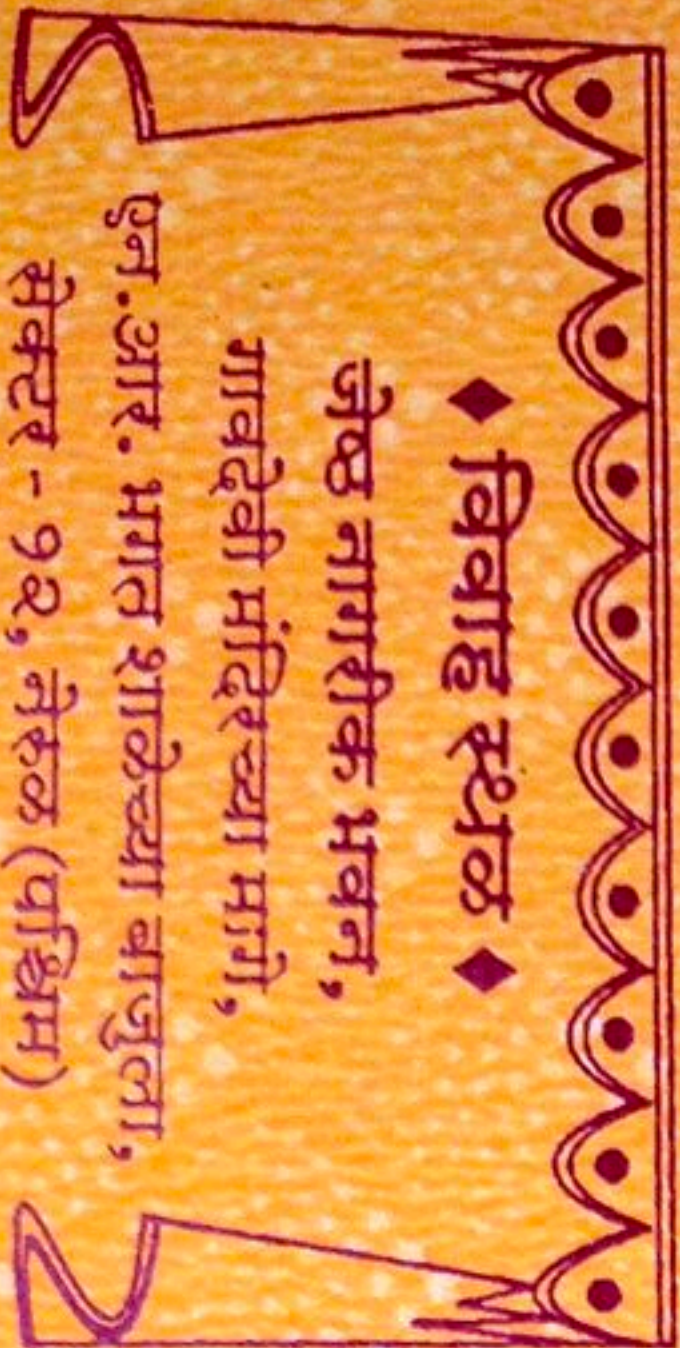 ♦ विवाह स्थळ ♦
जेष्ठ नागरीक भवन,
गावदेवी मंदिरच्या मागे,
एन.आर. भगत शाळेच्या बाजुला,
सेक्टर - १२, नेरुळ (पश्चिम)